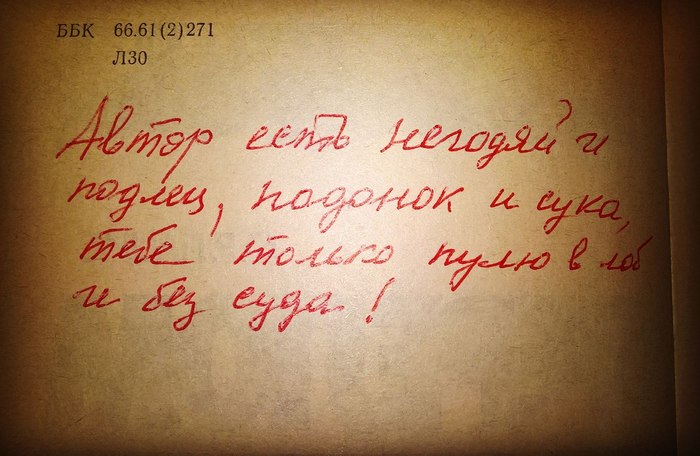 ББК 66.61(2)271
Л30
Автор есть негодяй и
подлец, подонок и сука,
тебе только пулю в лоб
и без суда!